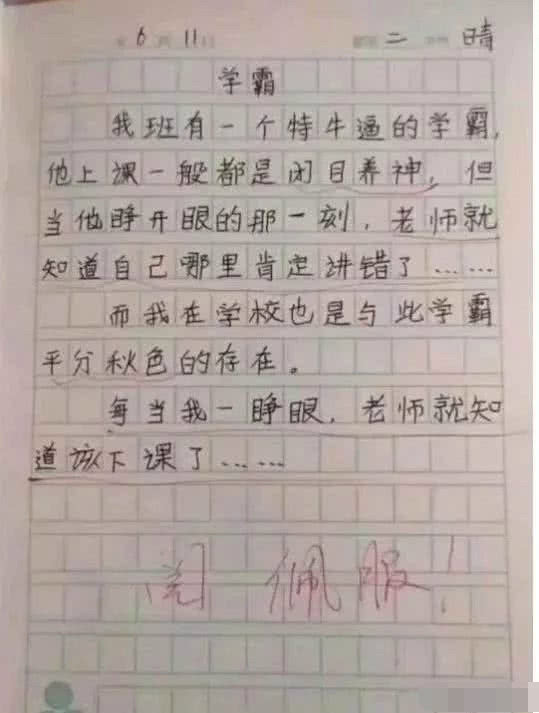 6月11日 二 晴
学霸
我班有一个特牛逼的学霸,
他上课一般都是闭目养神,但
当他睁开眼的那一刻,老师就
知道自己哪里肯定讲错了……
而我在学校也是与此学霸
平分秋色的存在。
每当我一睁眼,老师就知
道该下课了……
阅 佩服!